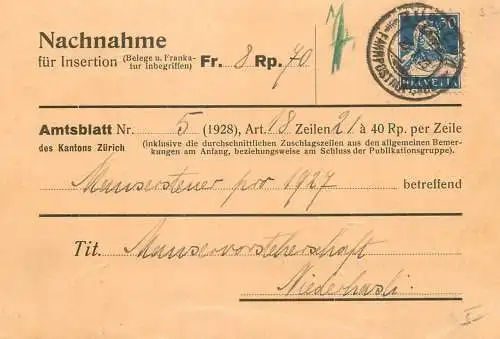 Nachnahme
für Insertion (Belege u. Frankatur inbegriffen) Fr. 8 Rp. 70
30
HELVETIA
Amtsblatt Nr. 5 (1928), Art. 18 Zeilen 21 à 40 Rp. per Zeile
des Kantons Zürich (inklusive die durchschnittlichen Zuschlagszeilen aus den allgemeinen Bemerkungen am Anfang, beziehungsweise am Schluss der Publikationsgruppe).
Mausersteuer pro 1927 betreffend
Tit. Mauservorsteherschaft
Niederhasli.